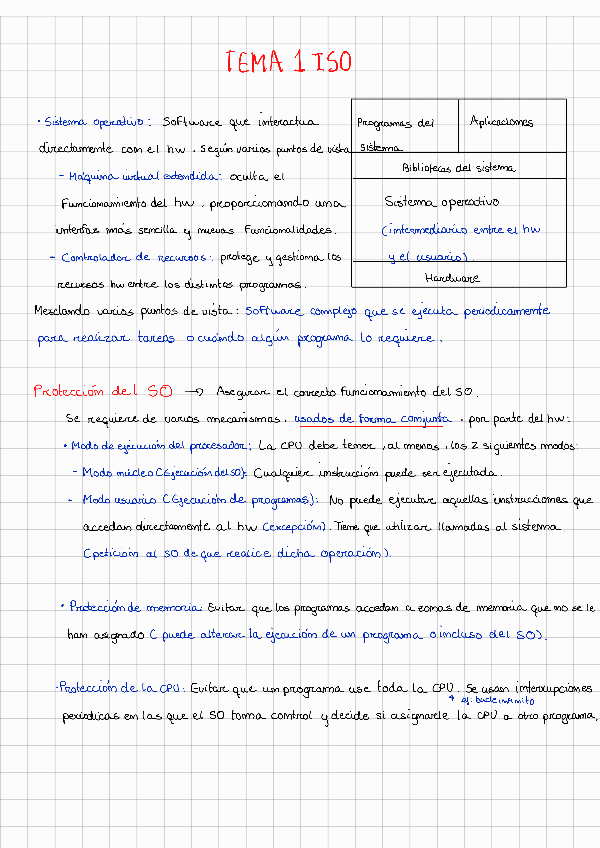 TEMA 1 ISO
· Sistema operativo: Software que interactua
directamente con el hw. Según varios puntos de vista
- Máquina virtual extendida: oculta el
funcionamiento del hw, proporcionando una
interfaz más sencilla y nuevas funcionalidades.
- Controlador de recursos: protege y gestiona los
recursos hw entre los distintos programas.
Programas del
sistema
Aplicaciones
Bibliotecas del sistema
Sistema operativo
(intermediario entre el hw
y el usuario).
Hardware
Mezclando varios puntos de vista: Software complejo que se ejecuta periodicamente
para realizar tareas o cuándo algún programa lo requiere.
Protección del SO → Asegurar el correcto funcionamiento del SO.
Se requiere de varios mecanismos, usados de forma conjunta, por parte del hw:
• Modo de ejecución del procesador: La CPU debe tener, al menos, los 2 siguientes modos:
- Modo núcleo (Ejecución del SO): Cualquier instrucción puede ser ejecutada.
- Modo usuario (Ejecución de programas): No puede ejecutar aquellas instrucciones que
accedan directamente al hw (excepción). Tiene que utilizar llamadas al sistema
(petición al SO de que realice dicha operación).
• Protección de memoria: Evitar que los programas accedan a zonas de memoria que no se le
han asignado (puede alterar la ejecución de un programa o incluso del SO).
·Protección de la CPU: Evitar que un programa use toda la CPU. Se usan interrupciones
↑ ej: bucle infinito
periódicas en las que el SO toma control y decide si asignarle la CPU a otro programa,